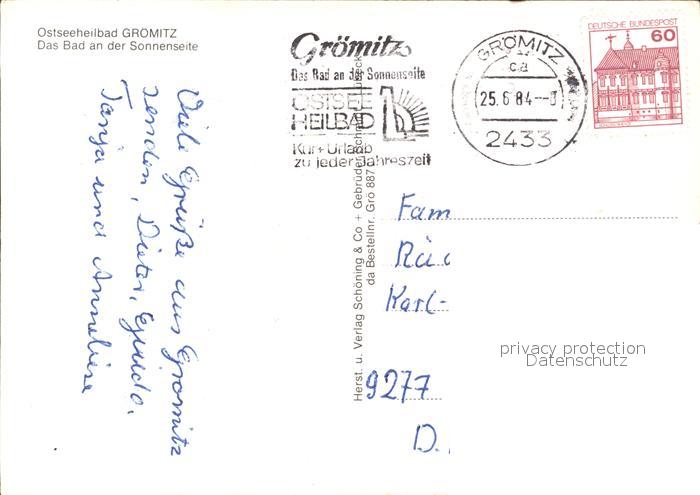 Ostseeheilbad GRÖMITZ
Das Bad an der Sonnenseite
Grömitz
Das Bad an der Sonnenseite
OSTSEE
HEILBAD
Kur + Urlaub
zu jeder Jahreszeit
GRÖMITZ
ca
25.6.84
2433
DEUTSCHE BUNDESPOST
60
Viele Grüße aus Grömitz
senden, Dieter,
Tanja und Anneliese
Herst. u. Verlag Schöning & Co + Gebrüder Schmidt
da Bestellnr. Grö 887
Fam
Karl-
9277
D.
privacy protection
Datenschutz